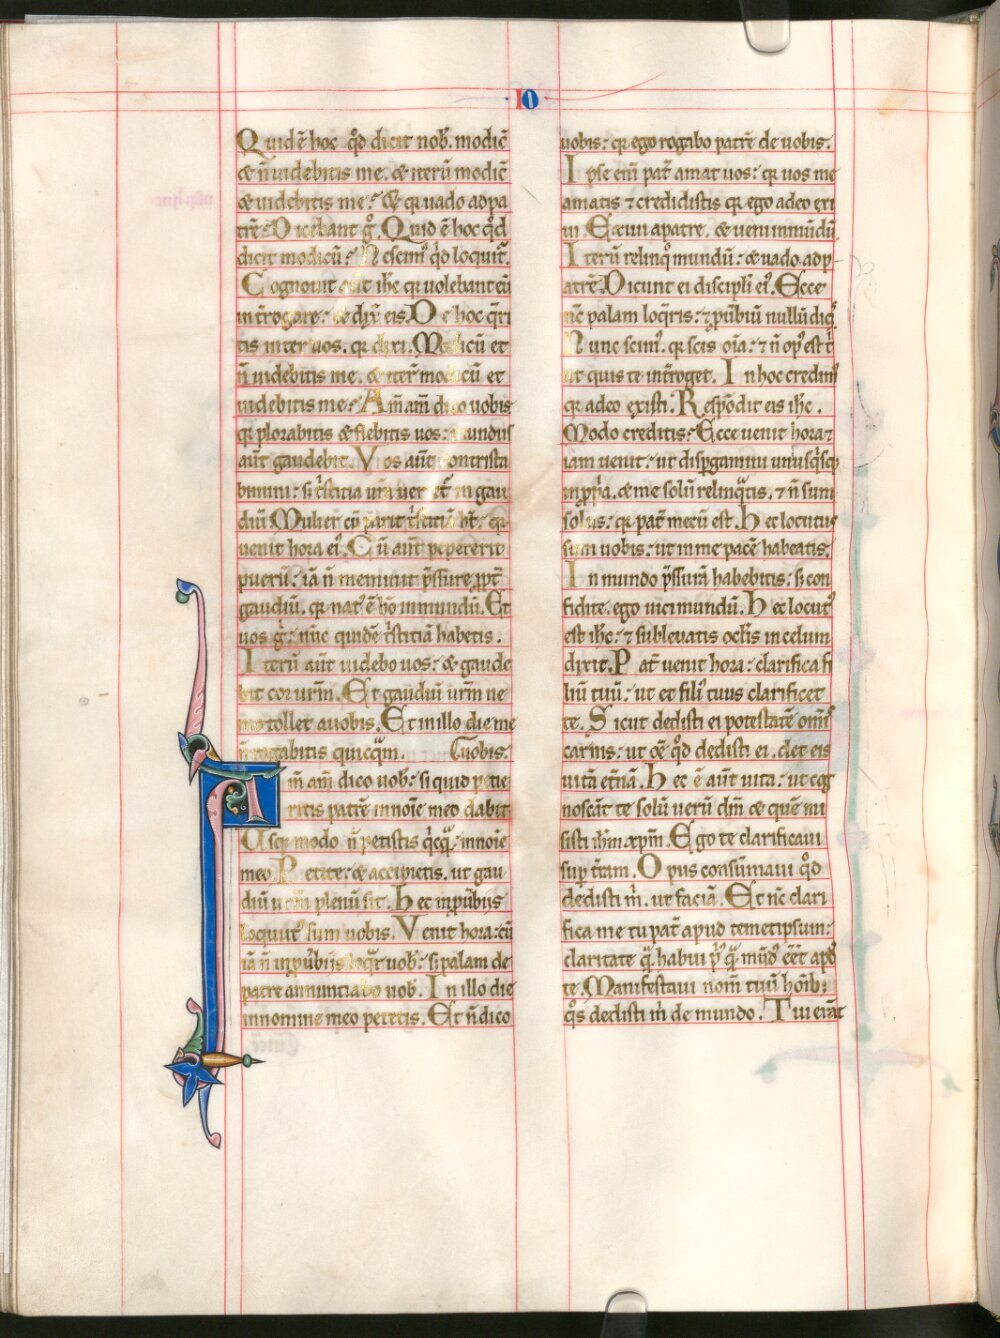 IO
Quid ē hoc qd̄ dicit nob̄. modic̄
& n̄ uidebitis me. & iterū modic̄
& uidebitis me: & q; uado ad pa
trē: Dicebant g̊. Quid ē hoc qd̄
dicit modicū: Nescim᷒ qd̄ loquit᷑.
Cognouit aūt ih̄c q; uolebant eū
int̄rogare: & dix̄ eis. De hoc q̄ri
tis inter uos. q; dixi. Modicū et
n̄ uidebitis me. & iter̄ modicū et
uidebitis me: Am̄ am̄ dico uobis
q; plorabitis & flebitis uos: mundus
aūt gaudebit. Vos aūt contrista
bimini: s; t̄stitia urā uertet᷑ in gau
diū Mulier cū parit t̄stitiā ht̄: q;
uenit hora ei᷒. Cū aūt pepererit
puerū: iā n̄ meminit p̄ssure ꝓpt̄
gaudiū. q; nat᷒ ē hō in mundū. Et
uos g̊: nūc quidē t̄stitiā habetis.
Iterū aūt uidebo uos: & gaude
bit cor urm̄. Et gaudiū urm̄ ne
mo tollet a uobis. Et in illo die me
n̄ rogabitis quicq̄m. uobis.
Am̄ am̄ dico uob̄: si quid petie
ritis patrē in noīe meo dabit
Usq; modo n̄ petistis q̇cq̄: in noīe
meo. Petite: & accipietis. ut gau
diū urm̄ plenū sit. Hec in ꝓūbiis
locutus sum uobis. Venit hora: cū
iā n̄ in ꝓūbiis loq̄r uob̄: s; palam de
patre annuntiabo uob̄. In illo die
in nomine meo petetis. Et n̄ dico
uobis: q; ego rogabo patrē de uobis.
Ipse eni᷑ pat̄ amat uos: q; uos me
amatis ⁊ credidistis q; ego a deo exi
ui. Exiui a patre. & ueni in mūdū.
Iterū relinq᷒ mundū: & uado ad p
atrē. Dicunt ei discipl̄i ei᷒. Ecce
nc̄ palam loq̄ris: ⁊ ꝓūbiū nullū dic̄
Nunc scim᷒. q; scis oīa: ⁊ n̄ op᷒ est t̄
ut quis te int̄roget. In hoc credim᷒
q; a deo existi. Respōdit eis ih̄c.
Modo creditis: Ecce uenit hora ⁊
iam uenit: ut dispgamini unusq̇sq;
in ꝓpria. & me solū relinq̄tis. ⁊ n̄ sum
solus: q; pat̄ mecū est. Hec locutus
sum uobis. ut in me pacē habeatis.
In mundo p̄ssurā habebitis: s; con
fidite. ego uici mundū. Hec locut᷒
est ih̄c: ⁊ subleuatis oclīs in celum
dixit. Pat̄ uenit hora: clarifica fi
liū tuū: ut et fili᷒ tuus clarificet
te. Sicut dedisti ei potestatē omīs
carnis: ut oē qd̄ dedisti ei. det eis
uitā et̄nā. Hec ē aūt uita: ut cog
noscāt te solū uerū dm̄ & quē mi
sisti ih̄m xpm̄. Ego te clarificaui
sup t̄ram. Opus consūmaui qd̄
dedisti m̄. ut faciā. Et nc̄ clari
fica me tu pat̄ apud temetipsum:
claritate q̄ habui p᷒ q̄ mūd᷒ eēt apd̄
te. Manifestaui nom̄ tuū hoīb;
q̊s dedisti m̄ de mundo. Tui erāt